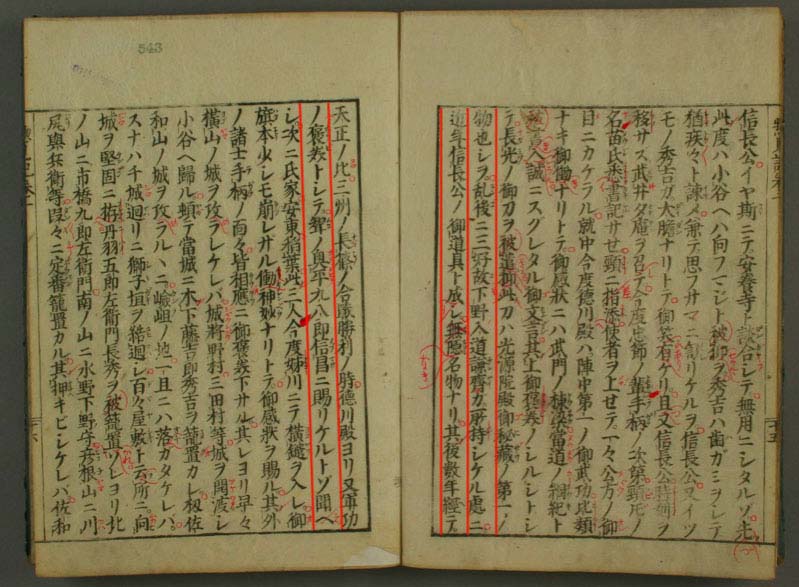 信長公イヤ斯ニテ安養寺ト談合シテ無用ニシタルソ先
此度ハ小谷ヘハ向フマシト被仰ヲ秀吉ハ歯ガミヲシテ
猶疾々ト諫メ兼テ思フサマニ計リケルヲ信長公又イツ
モノ秀吉カ大膽ナリトテ御笑有ケリ且又信長公
移サス武井夕庵ヲ召テ今度忠節ノ輩手柄ノ次第頸ノ
名苗氏悉書記サセ頸ニ指添使者ヲ上セテ一々公方ノ御
目ニカケラル就中今度德川殿ハ陣中第一ノ御武功比類
ナキ御働ナリトテ御感狀ニハ武門ノ棟梁當道ノ綱紀ト
誠ニスグレタル御文言其上御褒美ノシルシトシ
テ長光ノ御刀ヲ被遣御此刀ハ光源院殿御秘藏ノ第一ノ
物也シヲ乱後ニ三好故下野入道所持シケル處ニ
近年信長公ノ御道具ト成シ無隱名物ナリ其後數年經テ
天正ノ比三州ノ長篠ノ合戰勝利ノ時德川殿ヨリ又軍功
ノ褒美トシテ聟ノ奥平九八郎信昌ニ賜リケルトゾ聞ヘ
シ次ニ氏家安東稲葉此三人今度姉川ニテ横鎗ヲ入レ御
旗本少シモ崩レサル働神妙ナリトテ御感狀ヲ賜ル其外
ノ諸士手柄ノ面々皆相應ニ御褒美下サル其レヨリ早々
橫山ノ城ヲ攻ラレケレバ城將野村三田村等城ヲ開渡シ
小谷ヘ歸ル頓テ當城ニ木下藤吉郎秀吉ヲ籠置カレ扨佐
和山ノ城ヲ攻ラルヽニ嶮岨ノ地一旦ニハ落カタケレバ
スナハチ城廻リニ獅子垣ヲ結廻シ百々屋敷ト云所ニ向
城ヲ堅固ニ拵丹羽五郎左衛門長秀ヲ被籠置ソレヨリ北
ノ山ニ市橋九郎左衛門南ノ山ニ水野下野守彦根山ニ川
尻與兵衛等段々ニ定番籠置カル其押キビシケレバ佐和
543